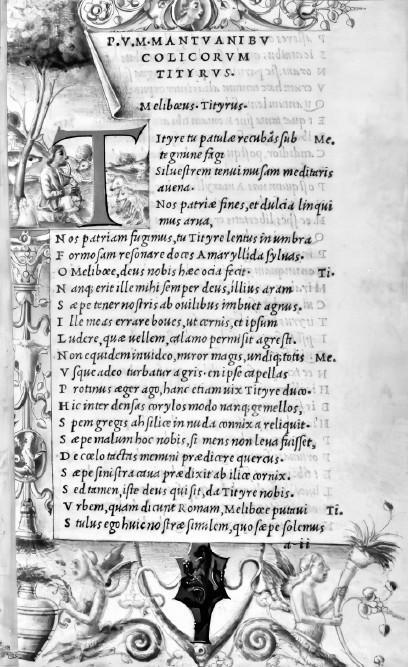 P. V. M. MANTVANI BV
COLICORVM
TITYRVS.
Melibœus. Tityrus.
Tityre tu patulæ recubãs sub Me.
tegmine fagi
Siluestrem tenui musam meditaris
auena.
Nos patriæ fines, et dulcia linqui
mus arua,
Nos patriam fugimus, tu Tityre lentus in umbra
Formosam resonare doces Amaryllida syluas.
O Melibœe, deus nobis hæc ocia fecit. Ti.
Nanq; erit ille mihi semper deus, illius aram
Sæpe tener nostris ab ouilibus imbuet agnus.
Ille meas errare boues, ut cernis, et ipsum
Ludere, quæ uellem, calamo permisit agresti.
Non equidem inuideo, miror magis, undiq; totis Me.
Vsque adeo turbatur agris. en ipse capellas
Protinus æger ago, hanc etiam uix Tityre duco.
Hic inter densas corylos modo nanq; gemellos,
Spem gregis ah silice in nuda connixa reliquit.
Sæpe malum hoc nobis, si mens non leua fuisset,
De cœlo tactas memini prædicere quercus.
Sæpe sinistra caua prædixit ab ilice cornix.
Sed tamen, iste deus qui sit, da Tityre nobis.
Vrbem, quam dicunt Romam, Melibœe putaui Ti.
Stulus ego huic nostræ similem, quo sæpe solemus
a-ii